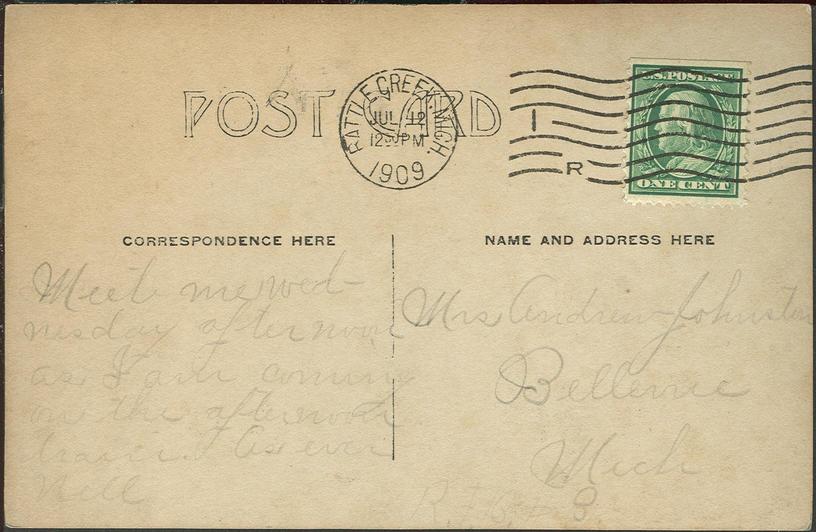 POST CARD
BATTLE CREEK, MICH.
JUL 12
12 30 PM
1909
1
R
U.S. POSTAGE
ONE CENT
CORRESPONDENCE HERE
NAME AND ADDRESS HERE
Meet me wed-
nesday afternoon
as I am coming
on the afternoon
train. As ever
Nell
Mrs Andrew Johnston
Bellevue
Mich